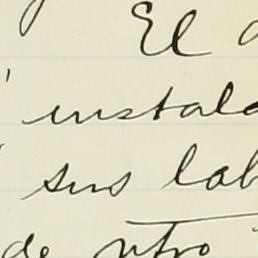 El
instala
sus lab
de ntro